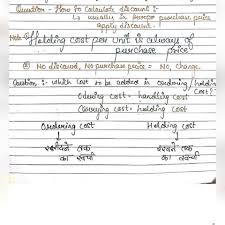 Question - How to calculate discount :-
↳ usually in purchase price
apply discount.
Note: Holding cost per unit is always of
purchase price
② No discount, No purchase price = No, change.
Question :- which cost to be added in ordering / holding
cost?
Ordering cost = handling cost
Carrying cost = holding cost
Ordering cost Holding cost
खरीदने तक रखने तक
का खर्चा का खर्चा